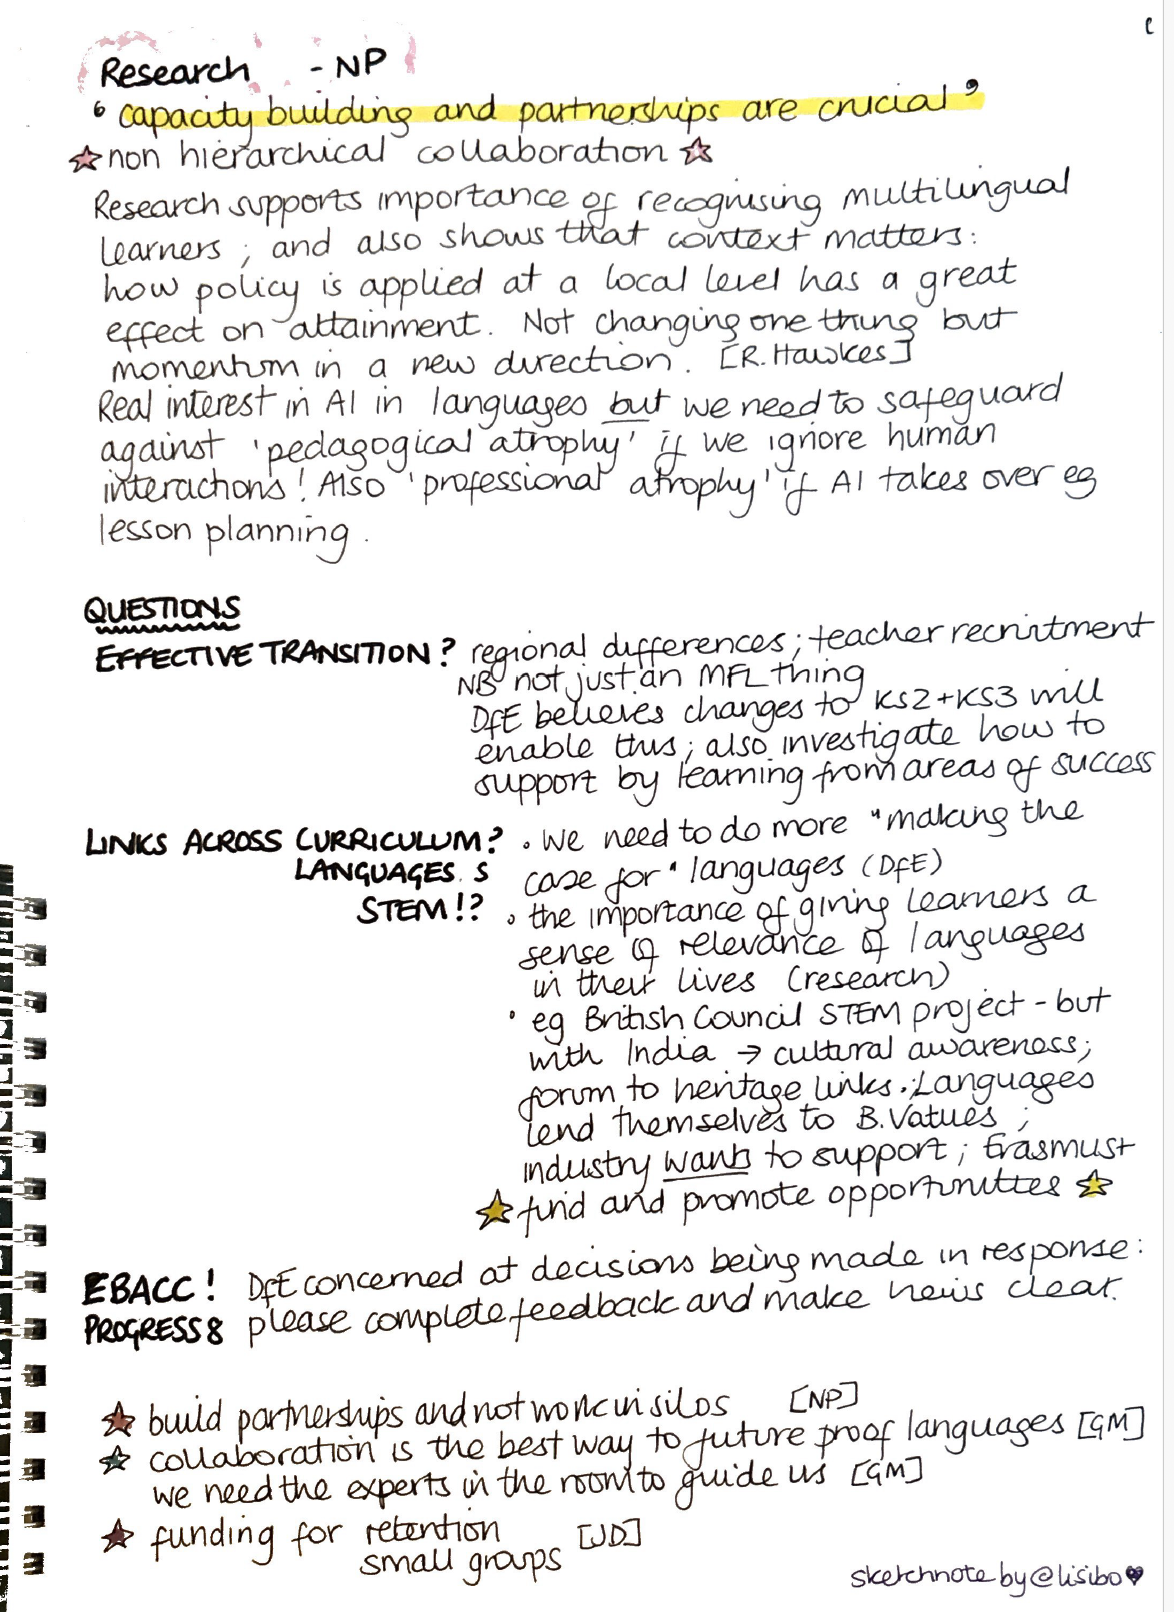 Research - NP
' capacity building and partnerships are crucial '
non hierarchical collaboration
Research supports importance of recognising multilingual
learners ; and also shows that context matters:
how policy is applied at a local level has a great
effect on attainment. Not changing one thing but
momentum in a new direction. [R. Hawkes]
Real interest in AI in languages but we need to safeguard
against 'pedagogical atrophy' if we ignore human
interactions! Also 'professional atrophy' if AI takes over eg
lesson planning.
QUESTIONS
EFFECTIVE TRANSITION? regional differences; teacher recruitment
NB not just an MFL thing
DfE believes changes to KS2+KS3 will
enable this; also investigate how to
support by learning from areas of success
LINKS ACROSS CURRICULUM? • we need to do more "making the
LANGUAGES S case for" languages (DfE)
STEM!? • the importance of giving learners a
sense of relevance of languages
in their lives (research)
• eg British Council STEM project - but
with India → cultural awareness;
forum to heritage links. Languages
lend themselves to B. Values ;
industry wants to support ; Erasmus+
find and promote opportunities
EBACC! DfE concerned at decisions being made in response:
PROGRESS 8 please complete feedback and make views clear.
build partnerships and not work in silos [NP]
collaboration is the best way to future proof languages [GM]
we need the experts in the room to guide us [GM]
funding for retention [JD]
small groups
sketchnote by @lisibo